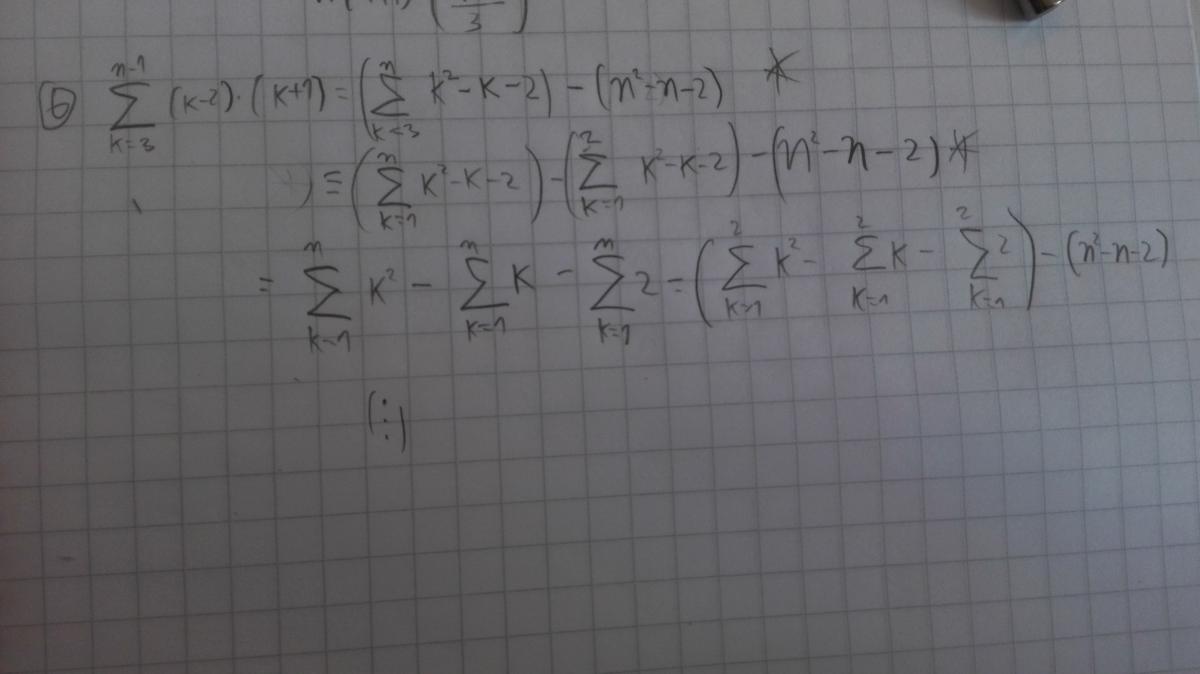 3
⑥ \sum_{k=3}^{n-1} (k-2)·(k+1) = (\sum_{k=3}^{n} k²-k-2) - (n²-n-2) *
= (\sum_{k=1}^{n} k²-k-2) - (\sum_{k=1}^{2} k²-k-2) - (n²-n-2) *
= \sum_{k=1}^{n} k² - \sum_{k=1}^{n} k - \sum_{k=1}^{n} 2 = (\sum_{k=1}^{2} k² - \sum_{k=1}^{2} k - \sum_{k=1}^{2} 2) - (n²-n-2)
(⋮)